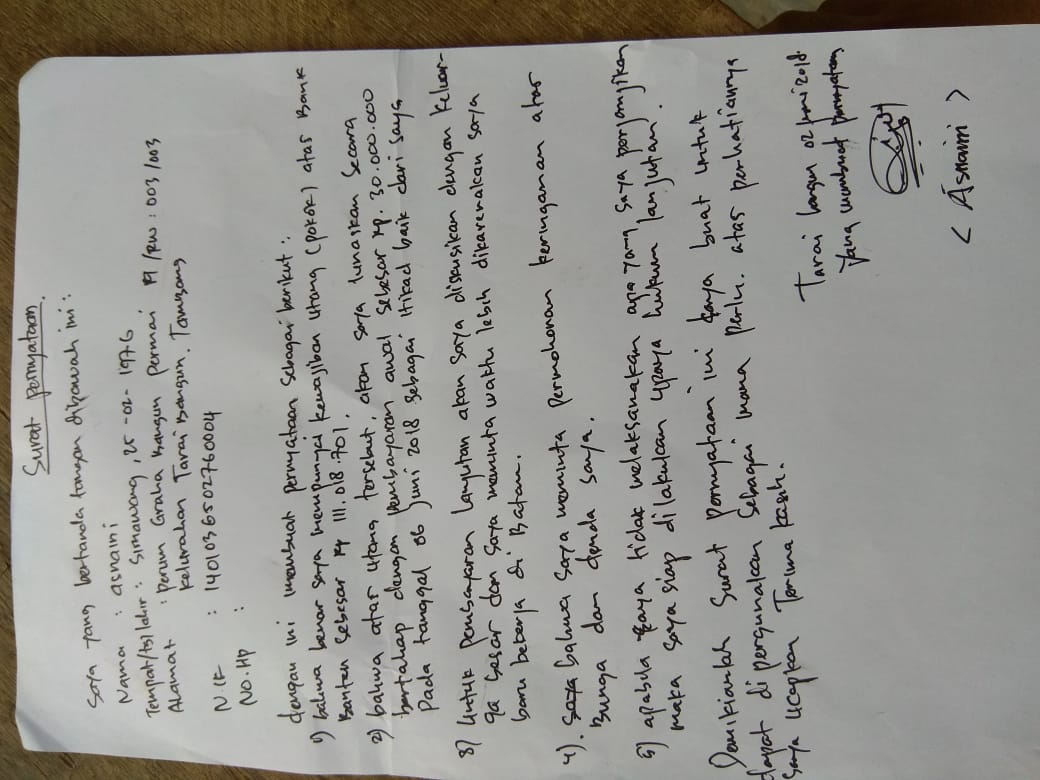 Surat pernyataan.
Saya yang bertanda tangan dibawah ini :
Nama : asnaini
Tempat/tgl/lahir : Simawang, 25-02-1976
Alamat : perum Graha Bangun permai, Rt/RW : 003/003
kelurahan Tarai Bangun. Tambang
N.IK : 1401036502760004
NO.HP :
dengan ini membuat pernyataan sebagai berikut :
1) bahwa benar saya mempunyai kewajiban utang (pokok) atas Bank
Banten sebesar Rp 111.018.701,
2) bahwa atas utang tersebut, akan saya lunaskan secara
bertahap dengan pembayaran awal sebesar Rp. 30.000.000
Pada tanggal 06 juni 2018 sebagai itikad baik dari saya
3) Untuk pembayaran lanjutan akan saya diskusikan dengan keluar-
ga besar dan saya meminta waktu lebih dikarenakan saya
baru bekerja di Batam.
4). Saya bahwa saya meminta permohonan keringanan atas
Bunga dan denda saya.
5) apabila saya tidak melaksanakan apa yang saya perjanjikan
maka saya siap dilakukan upaya hukum lanjutan.
Demikianlah Surat pernyataan ini saya buat untuk
dapat dipergunakan sebagai mana perlu. atas perhatiannya
saya ucapkan Terima kasih.
Tarai bangun 02 juni 2018
Yang membuat pernyataan
( Asnaini )